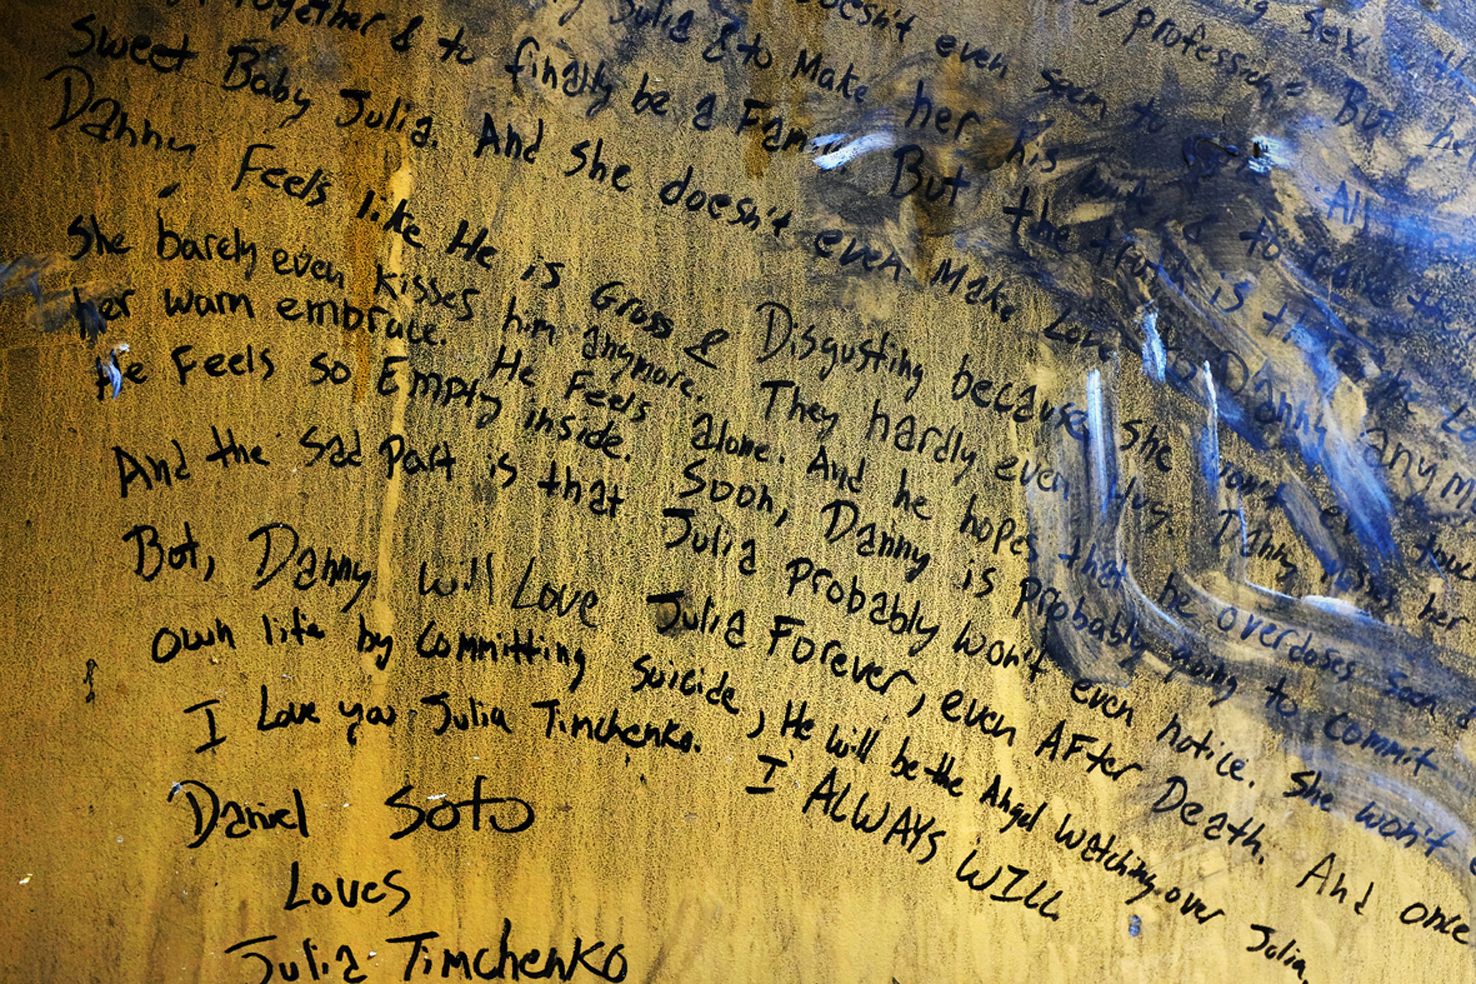 sex
/profession= But he
doesn't even seem to All
Julia & to Make her his wife & to raise the
together & to finally be a But the truth is the
Sweet Baby Julia. And she doesn't even Make Love to Danny anym
Danny Feels like He is Gross & Disgusting because she won't even touc
She barely even kisses him anymore. They hardly even Hug. Danny misses her
her warm embrace. He Feels alone. And he hopes that he overdoses soon &
He Feels so Empty inside. Soon, Danny is probably going to commit
And the sad Part is that Julia probably won't even notice. She won't e
But, Danny will Love Julia Forever, even AFter Death. And once
own life by committing suicide, He will be the Angel watching over Julia.
I Love you Julia Timchenko. I ALWAYS WILL.
Daniel Soto
Loves
Julia Timchenko